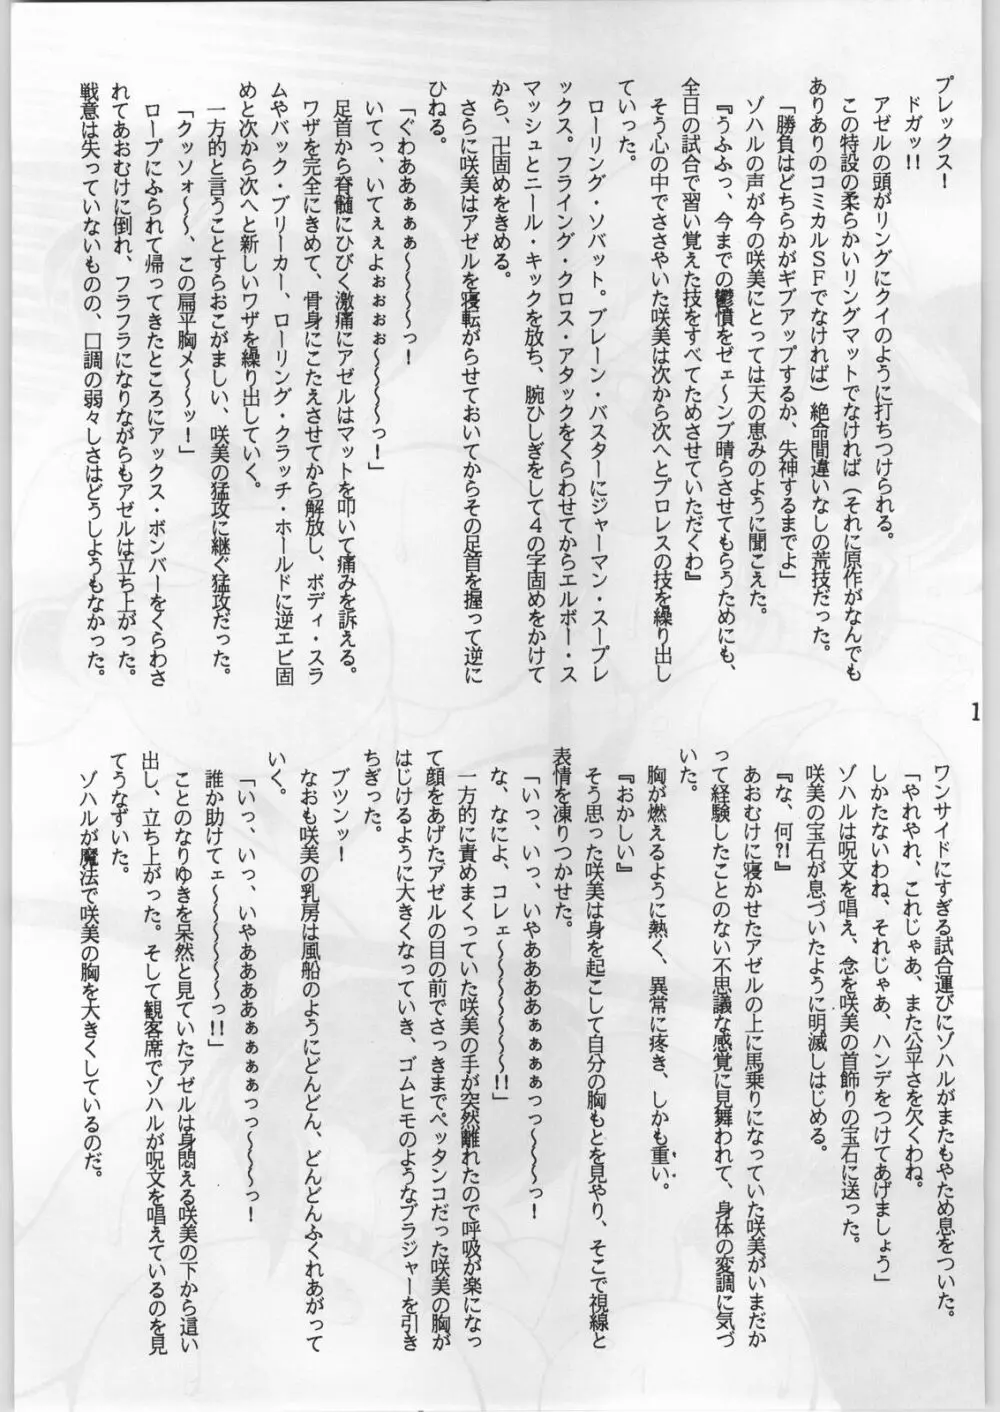 プレックス！
ドガッ!!
アゼルの頭がリングにクイのように打ちつけられる。
この特設の柔らかいリングマットでなければ（それに原作がなんでも
ありありのコミカルＳＦでなければ）絶命間違いなしの荒技だった。
「勝負はどちらかがギブアップするか、失神するまでよ」
ゾハルの声が今の咲美にとっては天の恵みのように聞こえた。
『うふふっ、今までの鬱憤をゼェ～ンブ晴らさせてもらうためにも、
全日の試合で習い覚えた技をすべてためさせていただくわ』
そう心の中でささやいた咲美は次から次へとプロレスの技を繰り出し
ていった。
ローリング・ソバット。ブレーン・バスターにジャーマン・スープレ
ックス。フライング・クロス・アタックをくらわせてからエルボー・ス
マッシュとニール・キックを放ち、腕ひしぎをして４の字固めをかけて
から、卍固めをきめる。
さらに咲美はアゼルを寝転がらせておいてからその足首を握って逆に
ひねる。
「ぐわああぁぁぁ～～～～っ！
いてっ、いてぇぇよぉぉぉぉ～～～～～っ！」
足首から脊髄にひびく激痛にアゼルはマットを叩いて痛みを訴える。
ワザを完全にきめて、骨身にこたえさせてから解放し、ボディ・スラ
ムやバック・ブリーカー、ローリング・クラッチ・ホールドに逆エビ固
めと次から次へと新しいワザを繰り出していく。
一方的と言うことすらおこがましい、咲美の猛攻に継ぐ猛攻だった。
「クッソォ～～、この扁平胸メ～～ッ！」
ロープにふられて帰ってきたところにアックス・ボンバーをくらわさ
れてあおむけに倒れ、フラフラになりながらもアゼルは立ち上がった。
戦意は失っていないものの、口調の弱々しさはどうしようもなかった。
1
ワンサイドにすぎる試合運びにゾハルがまたもやため息をついた。
「やれやれ、これじゃあ、また公平さを欠くわね。
しかたないわね、それじゃあ、ハンデをつけてあげましょう」
ゾハルは呪文を唱え、念を咲美の首飾りの宝石に送った。
咲美の宝石が息づいたように明滅しはじめる。
『な、何?!』
あおむけに寝かせたアゼルの上に馬乗りになっていた咲美がいまだか
って経験したことのない不思議な感覚に見舞われて、身体の変調に気づ
いた。
胸が燃えるように熱く、異常に疼き、しかも重い。
『おかしい』
そう思った咲美は身を起こして自分の胸もとを見やり、そこで視線と
表情を凍りつかせた。
「いっ、いっ、いやああああぁぁぁぁっっ～～～～っ！
な、なによ、コレェ～～～～～～～～!!」
一方的に責めまくっていた咲美の手が突然離れたので呼吸が楽になっ
て顔をあげたアゼルの目の前でさっきまでペッタンコだった咲美の胸が
はじけるように大きくなっていき、ゴムヒモのようなブラジャーを引き
ちぎった。
ブツンッ！
なおも咲美の乳房は風船のようにどんどん、どんどんふくれあがって
いく。
「いっ、いっ、いやああああぁぁぁぁっっ～～～～っ！
誰か助けてェ～～～～～～～っ!!」
ことのなりゆきを呆然と見ていたアゼルは身悶える咲美の下から這い
出し、立ち上がった。そして観客席でゾハルが呪文を唱えているのを見
てうなずいた。
ゾハルが魔法で咲美の胸を大きくしているのだ。